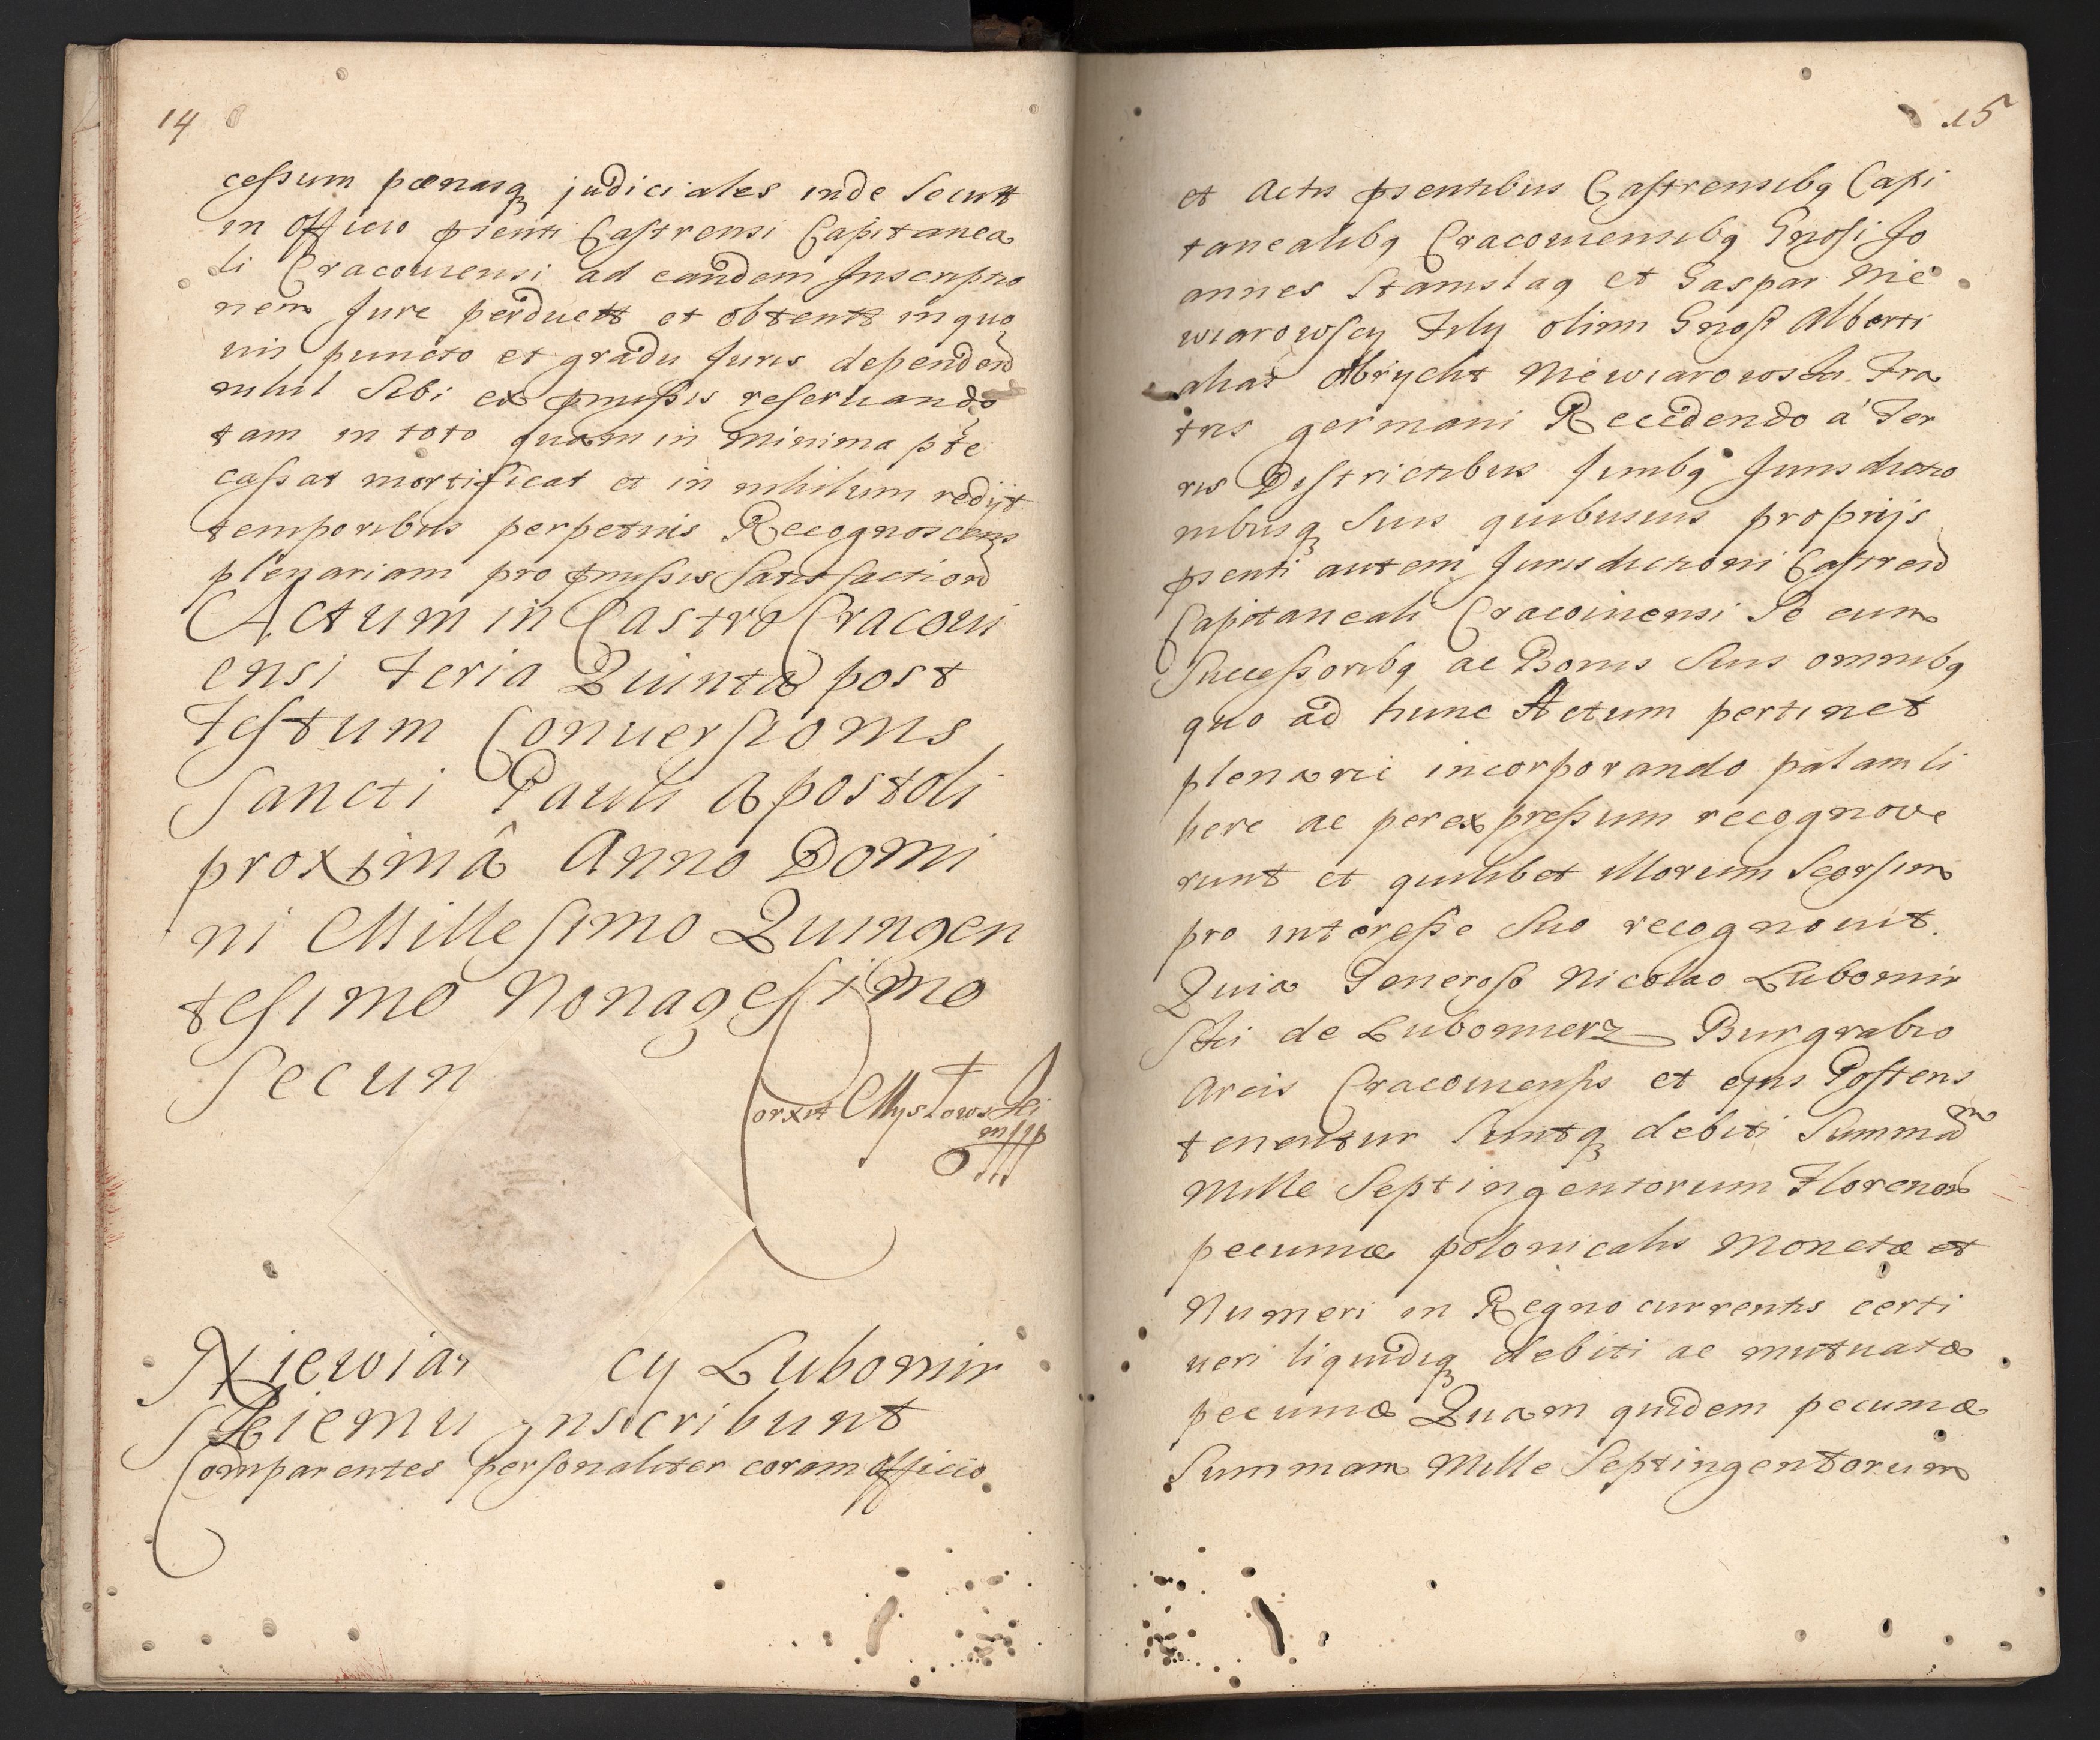 14
cessum pœnasq₃ judiciales inde Secutt
in Officio pnti Castrensi Capitanea
li Cracouiensi ad eandem Inscriptio
nem Jure perductt et obtentt in quo
uis puncto et gradu Juris dependen
nihil Sibi ex pmissis reseruando
tam in toto quam in minima pte
cassat mortificat et in nihilum redijt
temporibus perpetuis Recognoscens
plenariam pro pmissis Satisfaction
Actum in Castro Cracoui
ensi Feria Quinta post
Festum Conuersionis
Sancti Pauli Apostoli
proximâ Anno Domi
ni Millesimo Quingen
tesimo Nonagesimo
Secun
Corxit Myslowski
mpp
Niewiar cy Lubomir
Skiemu inscribunt
Comparentes personaliter coram Officio
15
et Actis psentibus Castrensibq Capi
tanealibq Cracouiensibq Gnosi Jo
annes Stanislaq et Gaspar Nie
wiarowscy Filij olim Gnosi Alberti
alias Olbrycht Niewiarowski Fra
tris germani Recedendo a Ter
ris Districtibus Juribq Jurisdictio
nibusq₃ Suis quibusuis proprijs
psenti autem Jurisdictioni Castren
Capitaneali Cracouiensi Se cum
Successoribq ac Bonis Suis omnibq
quo ad hunc Actum pertinet
plenarie incorporando palam li
bere ac per expressum recognoue
runt et quilibet Illorum Seorsim
pro interesse Suo recognouit.
Quia Generoso Nicolao Lubomir
Ski de Lubomierz Burgrabio
Arcis Cracouiensis et ejus Posteris
tenentur Suntq₃ debiti Summam
Mille Septingentorum Florenor
pecuniæ polonicalis Monetæ et
Numeri in Regno currentis certi
ueri liquidiq₃ debiti ac mutuatæ
pecuniæ Quam quidem pecuniæ
Summam Mille Septingentorum